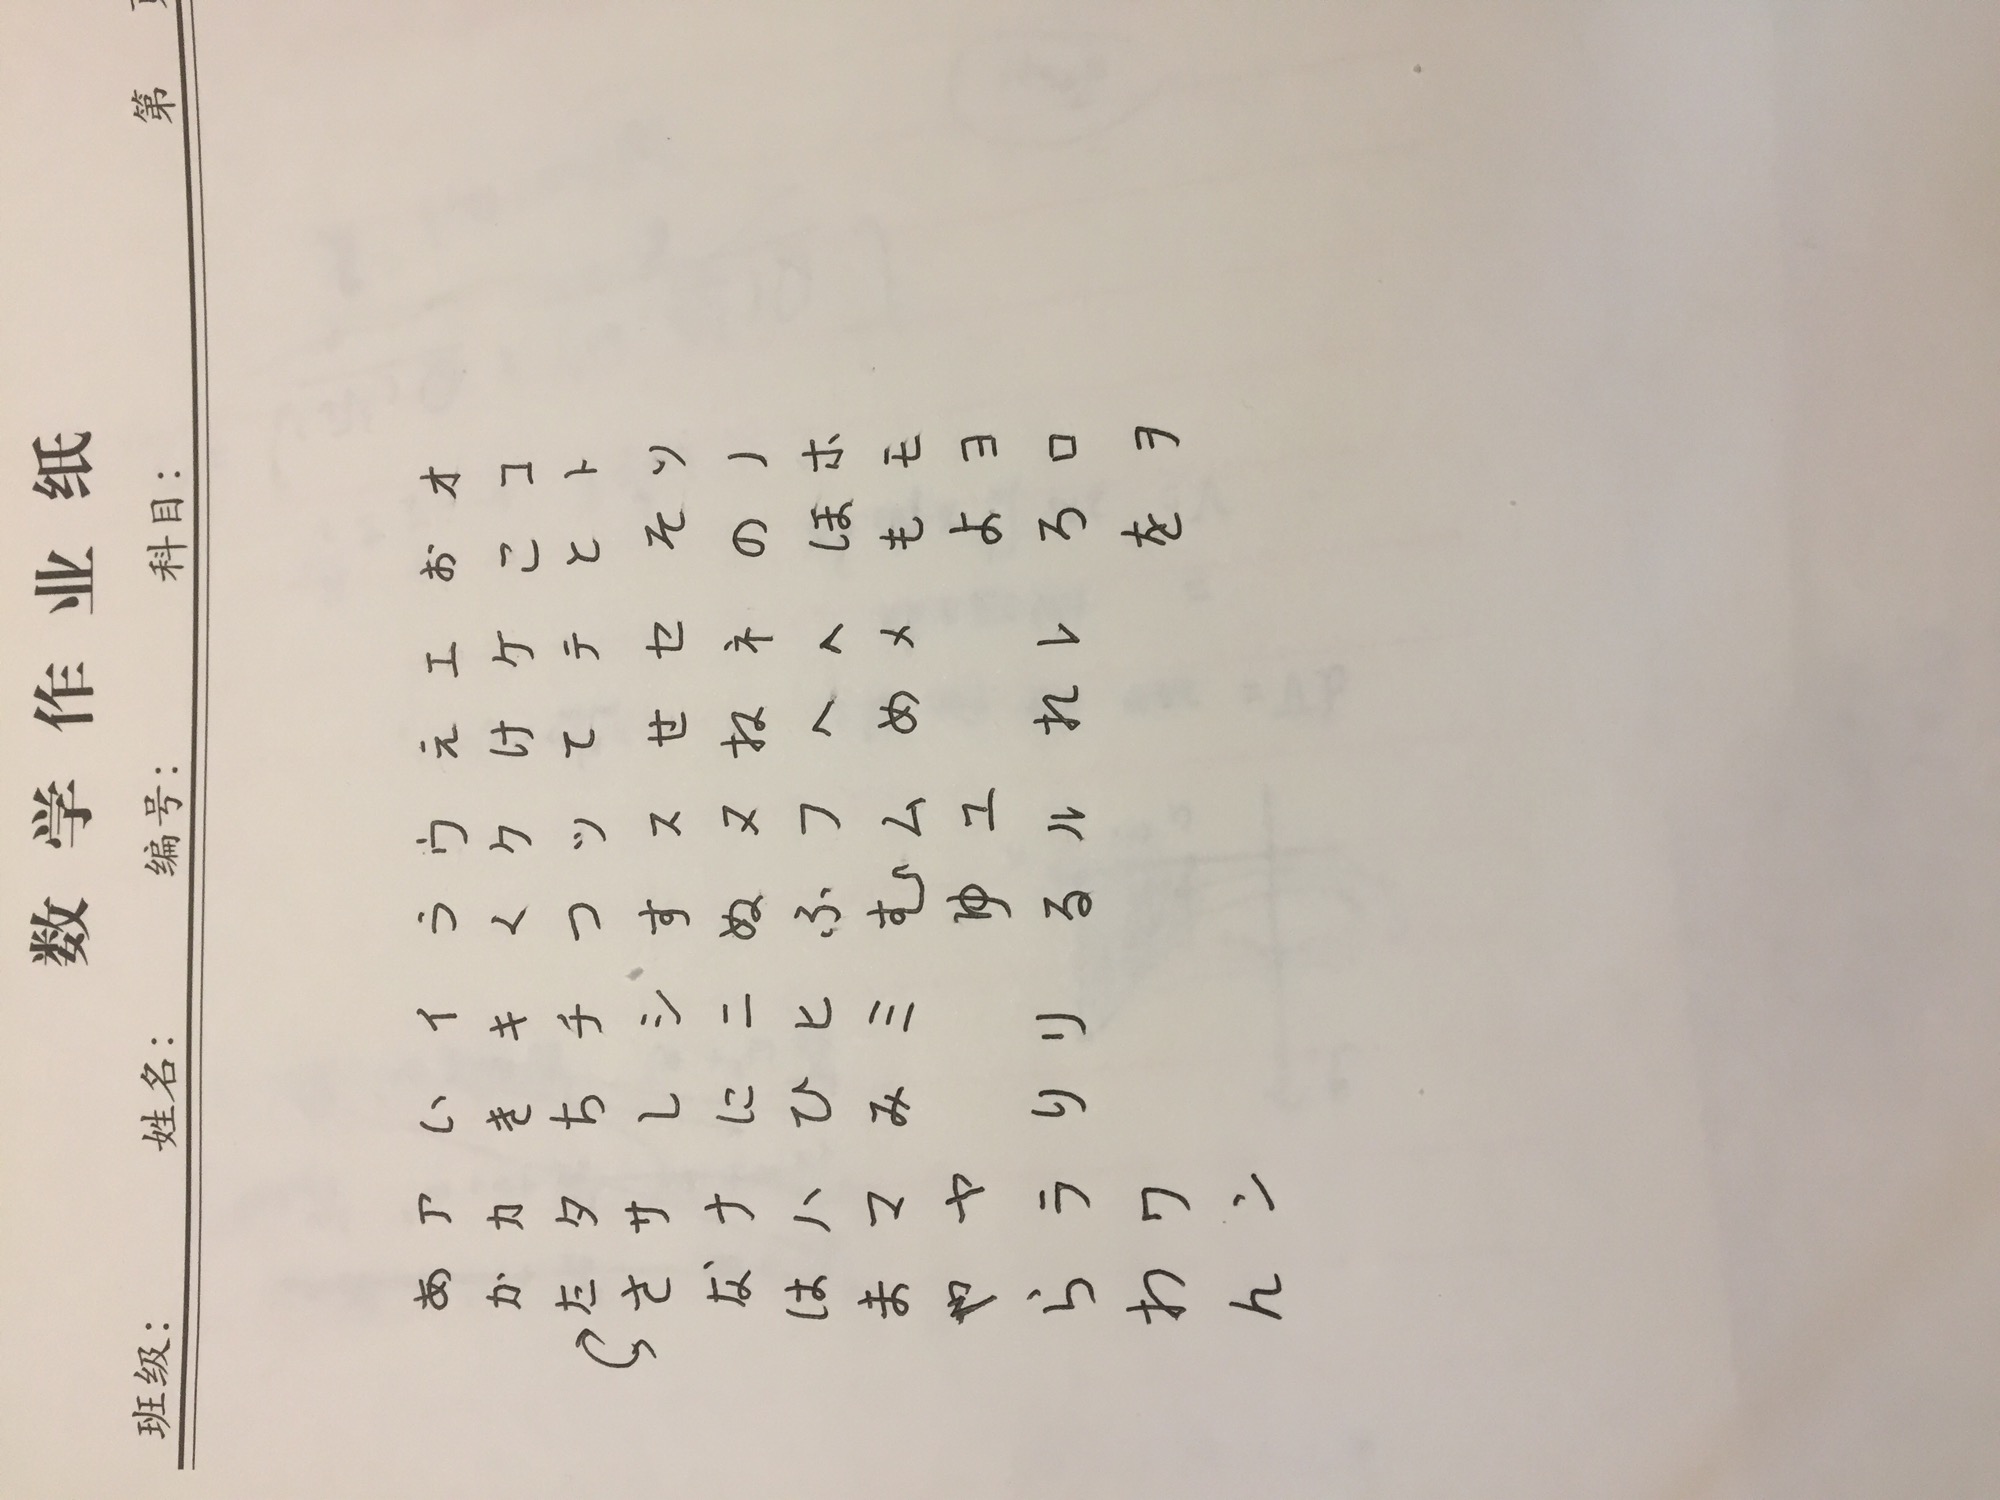 数学作业纸
班级: 姓名: 编号: 科目: 第
あア いイ うウ えエ おオ
かカ きキ くク けケ こコ
たタ ちチ つツ てテ とト
さサ しシ すス せセ そソ
なナ にニ ぬヌ ねネ のノ
はハ ひヒ ふフ へヘ ほホ
まマ みミ むム めメ もモ
やヤ ゆユ よヨ
らラ りリ るル れレ ろロ
わワ をヲ
んン